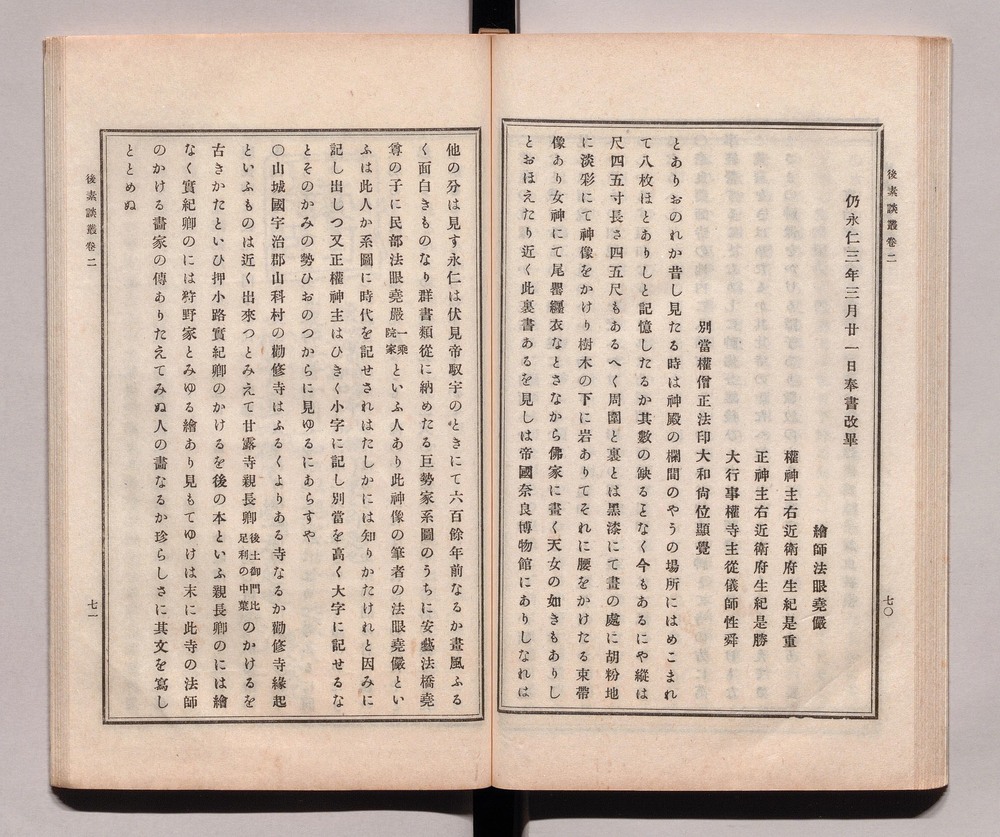 後素談叢卷二
仍永仁三年三月廿一日奉書改畢
繪師法眼堯儼
權神主右近衛府生紀是重
正神主右近衛府生紀是勝
大行事權寺主從儀師性舜
別當權僧正法印大和尙位顯覺
とありおのれか昔し見たる時は神殿の欄間のやうの場所にはめこまれ
て八枚ほとありしと記憶したるか其數の缺るとなく今もあるにや縱は
尺四五寸長さ四五尺もあるへく周圍と裏とは黑漆にて畫の處に胡粉地
に淡彩にて神像をかけり樹木の下に岩ありてそれに腰をかけたる束帶
像あり女神にて尾罌纒衣なとさなから佛家に畫く天女の如きもありし
とおほえたり近く此裏書あるを見しは帝國奈良博物館にありしなれは
七〇
他の分は見す永仁は伏見帝馭宇のときにて六百餘年前なるか畫風ふる
く面白きものなり群書類從に納めたる巨勢家系圖のうちに安藝法橋堯
尊の子に民部法眼堯嚴一乘院家といふ人あり此神像の筆者の法眼堯儼とい
ふは此人か系圖に時代を記せされはたしかには知りかたけれと因みに
記し出しつ又正權神主はひきく小字に記し別當を高く大字に記せるな
とそのかみの勢ひおのつからに見ゆるにあらすや
〇山城國宇治郡山科村の勸修寺はふるくよりある寺なるか勸修寺緣起
といふものは近く出來つとみえて甘露寺親長卿後土御門比足利の中葉のかけるを
古きかたといひ押小路實紀卿のかけるを後の本といふ親長卿のには繪
なく實紀卿のには狩野家とみゆる繪あり見もてゆけは末に此寺の法師
のかける畫家の傳ありたえてみぬ人の畫なるか珍らしさに其文を寫し
ととめぬ
後素談叢卷二
七一